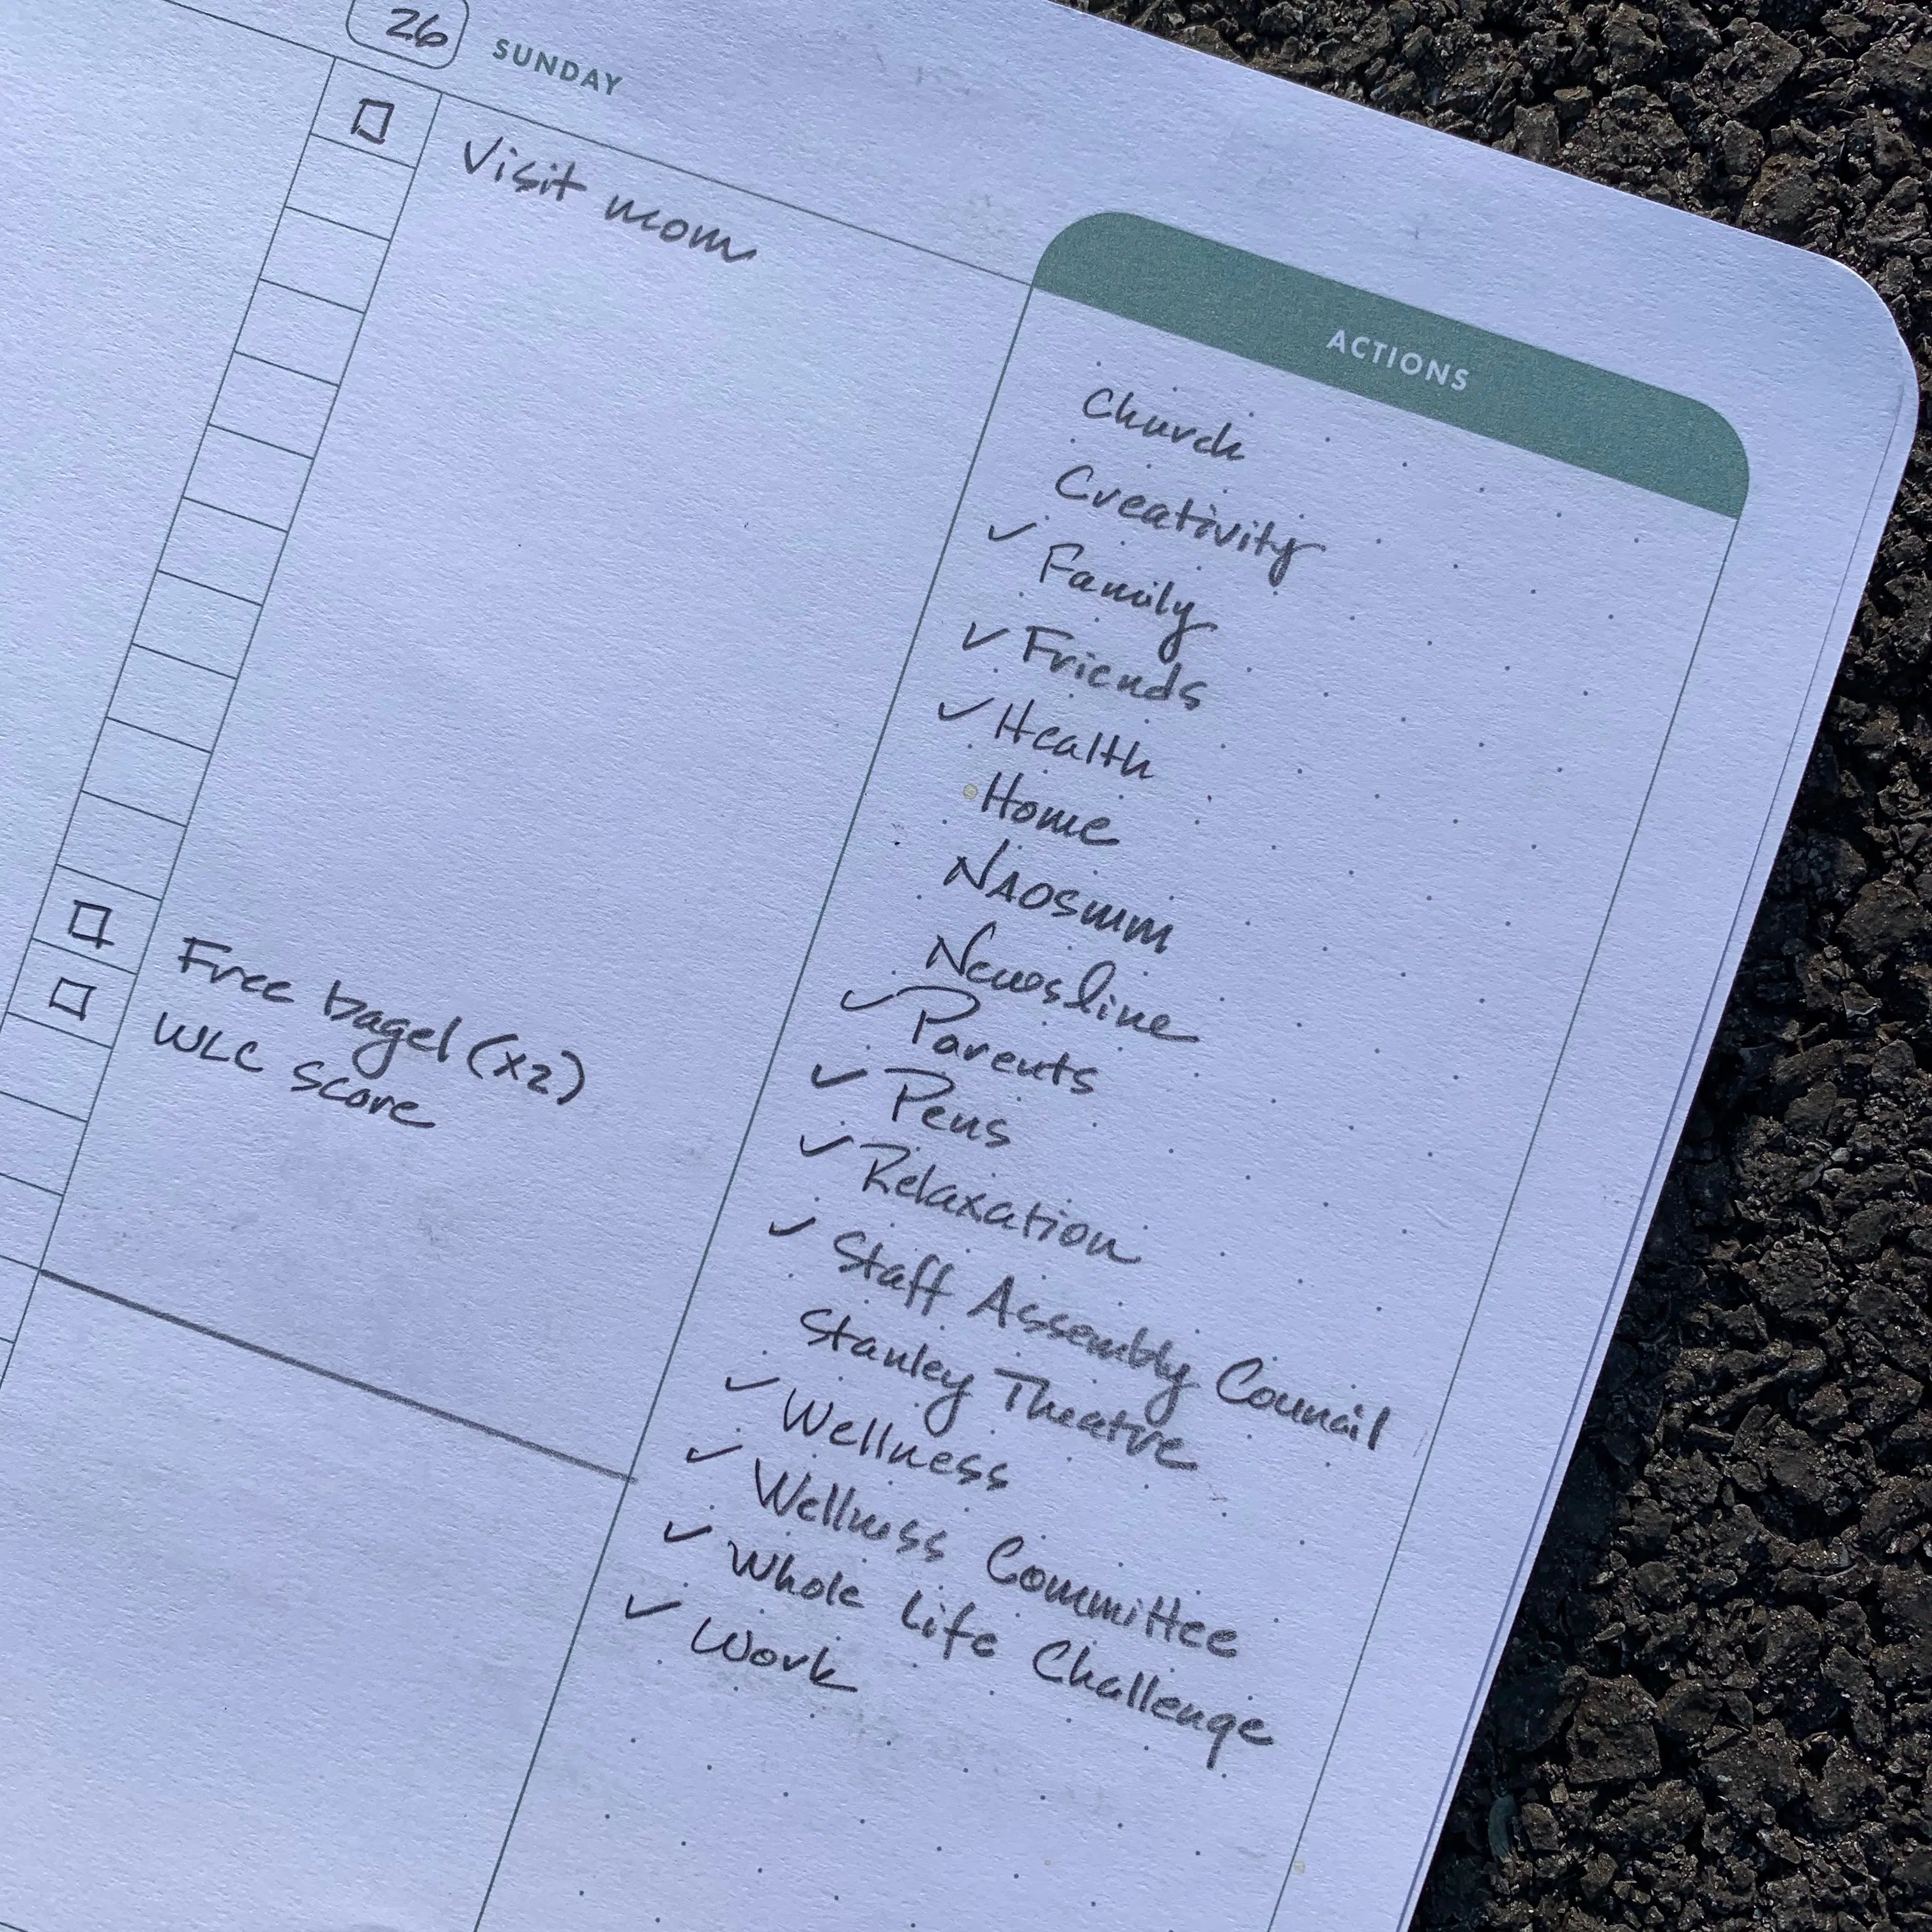 26 SUNDAY
Visit mom
Free bagel (x2)
WLC score
ACTIONS
Church
Creativity
✓ Family
✓ Friends
✓ Health
Home
NAOSMM
Newsline
✓ Parents
✓ Pens
✓ Relaxation
✓ Staff Assembly Council
Stanley Theatre
✓ Wellness
✓ Wellness Committee
✓ Whole Life Challenge
✓ Work